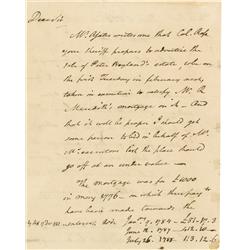 Dear Sir
Mr. Yates writes me that Col. Ross
your sheriff proposes to advertise the
Sale of Peter Boyland's estate when on
the first Tuesday in february next,
taken in execution to satisfy Mr. R
Meredith's mortgage on it. And
that it will be proper I should get
some person to bid in behalf of Mr.
M. executors lest the place should
go off at an under value
The mortgage was for £1000
in may 1776 on which they say to
have been made towards the
interest viz. Jany. 9. 1784 £51.17.3
June 12. 1787
July 26. 1788. 113.12.6